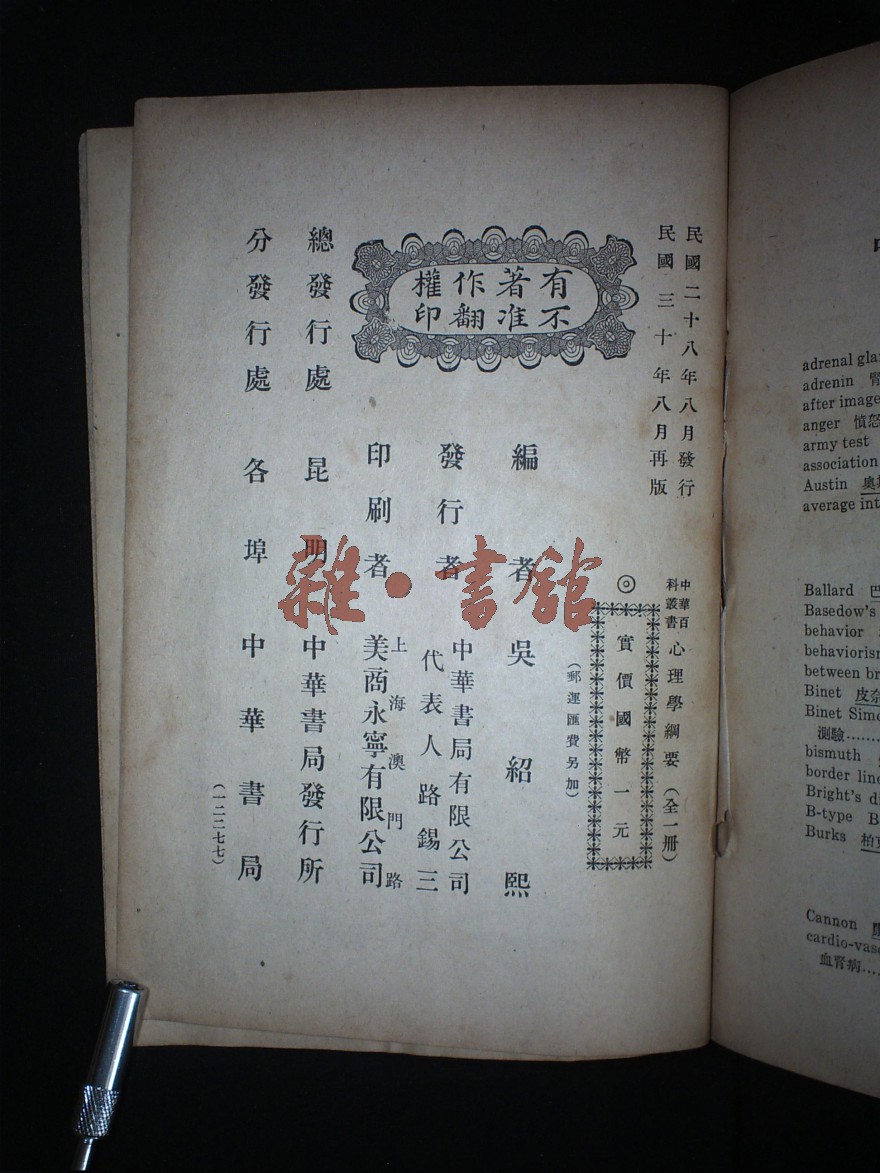 民國二十八年八月發行
民國三十年八月再版
中華百科叢書 心理學綱要（全一冊）
◎
實價國幣一元
（郵運匯費另加）
有著作權
不准翻印
編者 吳紹熙
發行者 中華書局有限公司
代表人路錫三
印刷者 上海澳門路
美商永寧有限公司
總發行處 昆明 中華書局發行所
分發行處 各埠 中華書局
（一二二七七）
雜·書館
adrenal gla
adrenin 腎
after image
anger 憤怒
army test
association
Austin 奧斯
average int
Ballard 巴
Basedow's
behavior
behaviorism
between br
Binet 皮奈
Binet Simo
測驗
bismuth
border line
Bright's di
B-type B
Burks 柏克
Cannon
cardio-vasc
血腎病